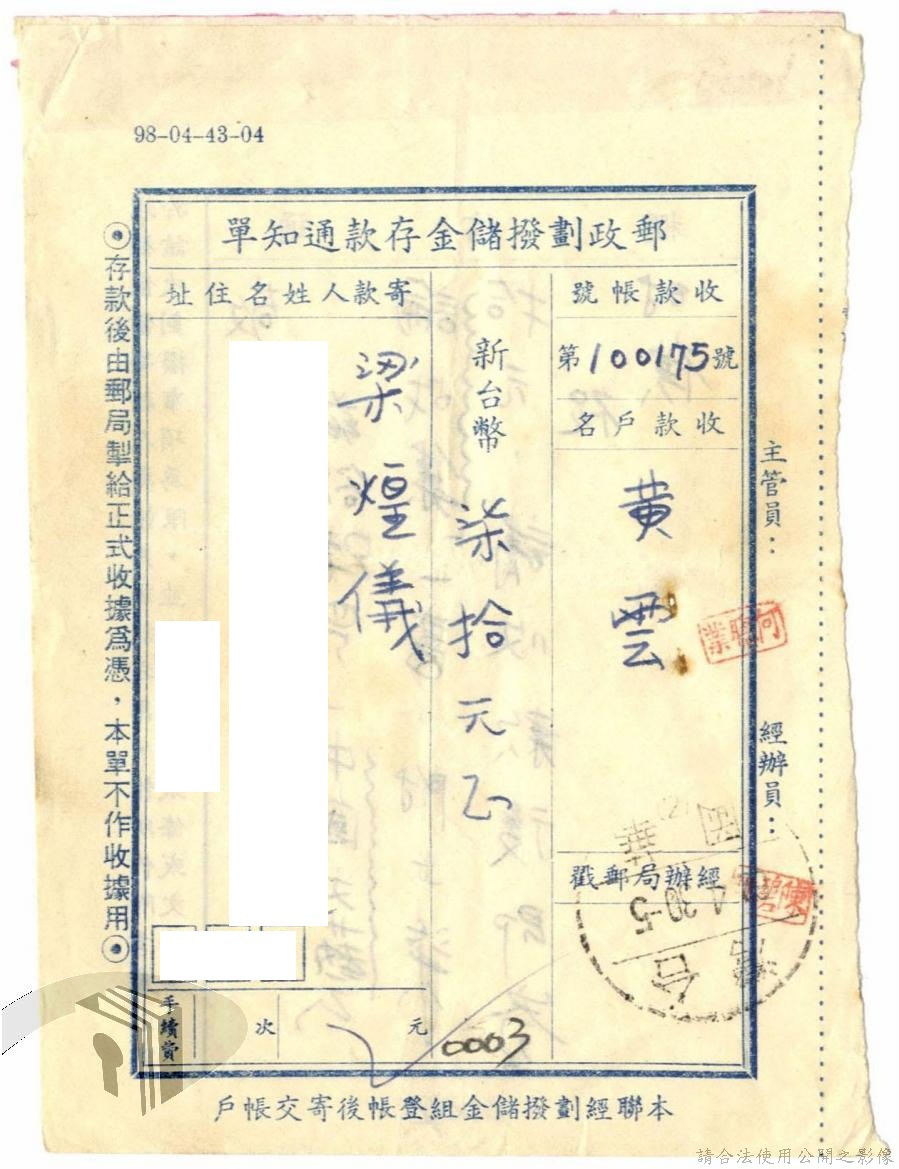 98-04-43-04
郵政劃撥儲金存款通知單
收款帳號
第100175號
收款戶名
黃雲
經辦郵局戳
新台幣
柒拾元正
寄款人姓名住址
梁煌儀
手續費
次
元
0003
主管員：
經辦員：
存款後由郵局掣給正式收據為憑，本單不作收據用
本聯經劃撥儲金組登帳後寄交帳戶
請合法使用公開之影像